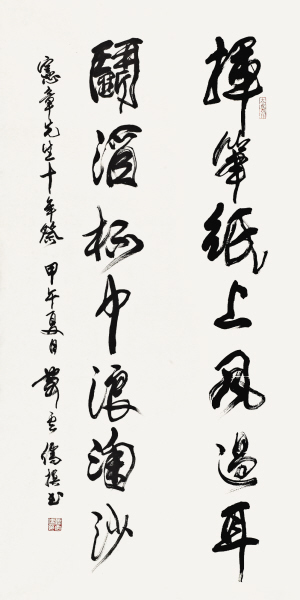 揮筆紙上風過耳
鬭酒杯中浪淘沙
憲章先生十年祭 甲午夏日 儒撰书